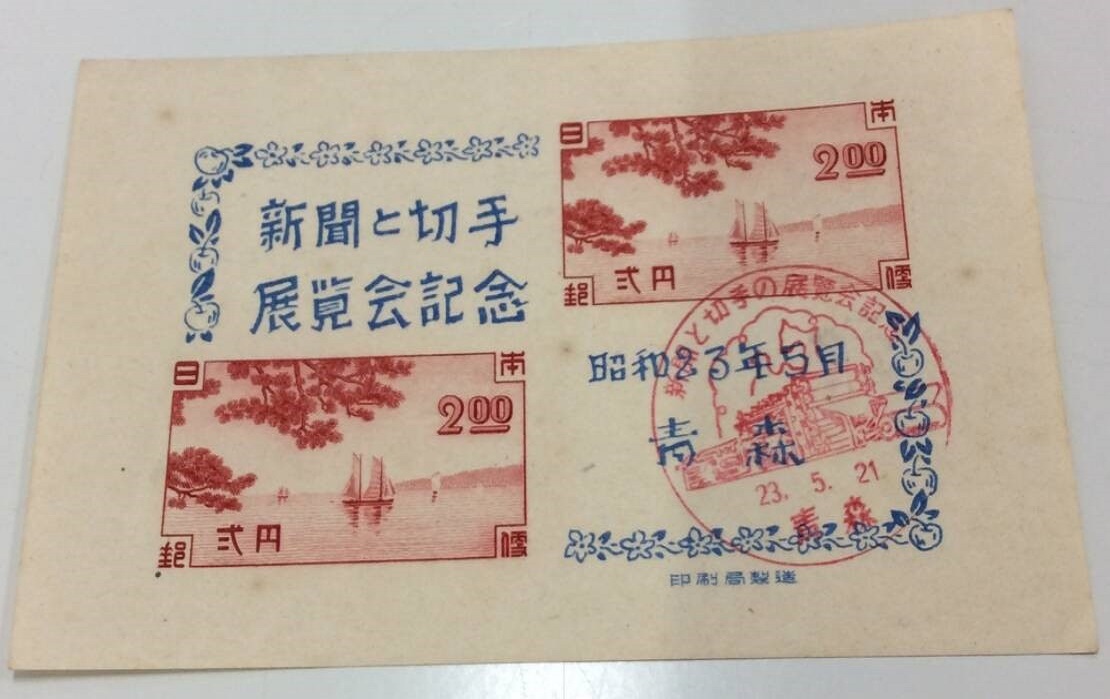 新聞と切手
展覧会記念
日本
2.00
弐円
郵便
昭和23年5月
青森
新聞と切手の展覧会記念
23. 5. 21
青森
日本
2.00
弐円
郵便
印刷局製造